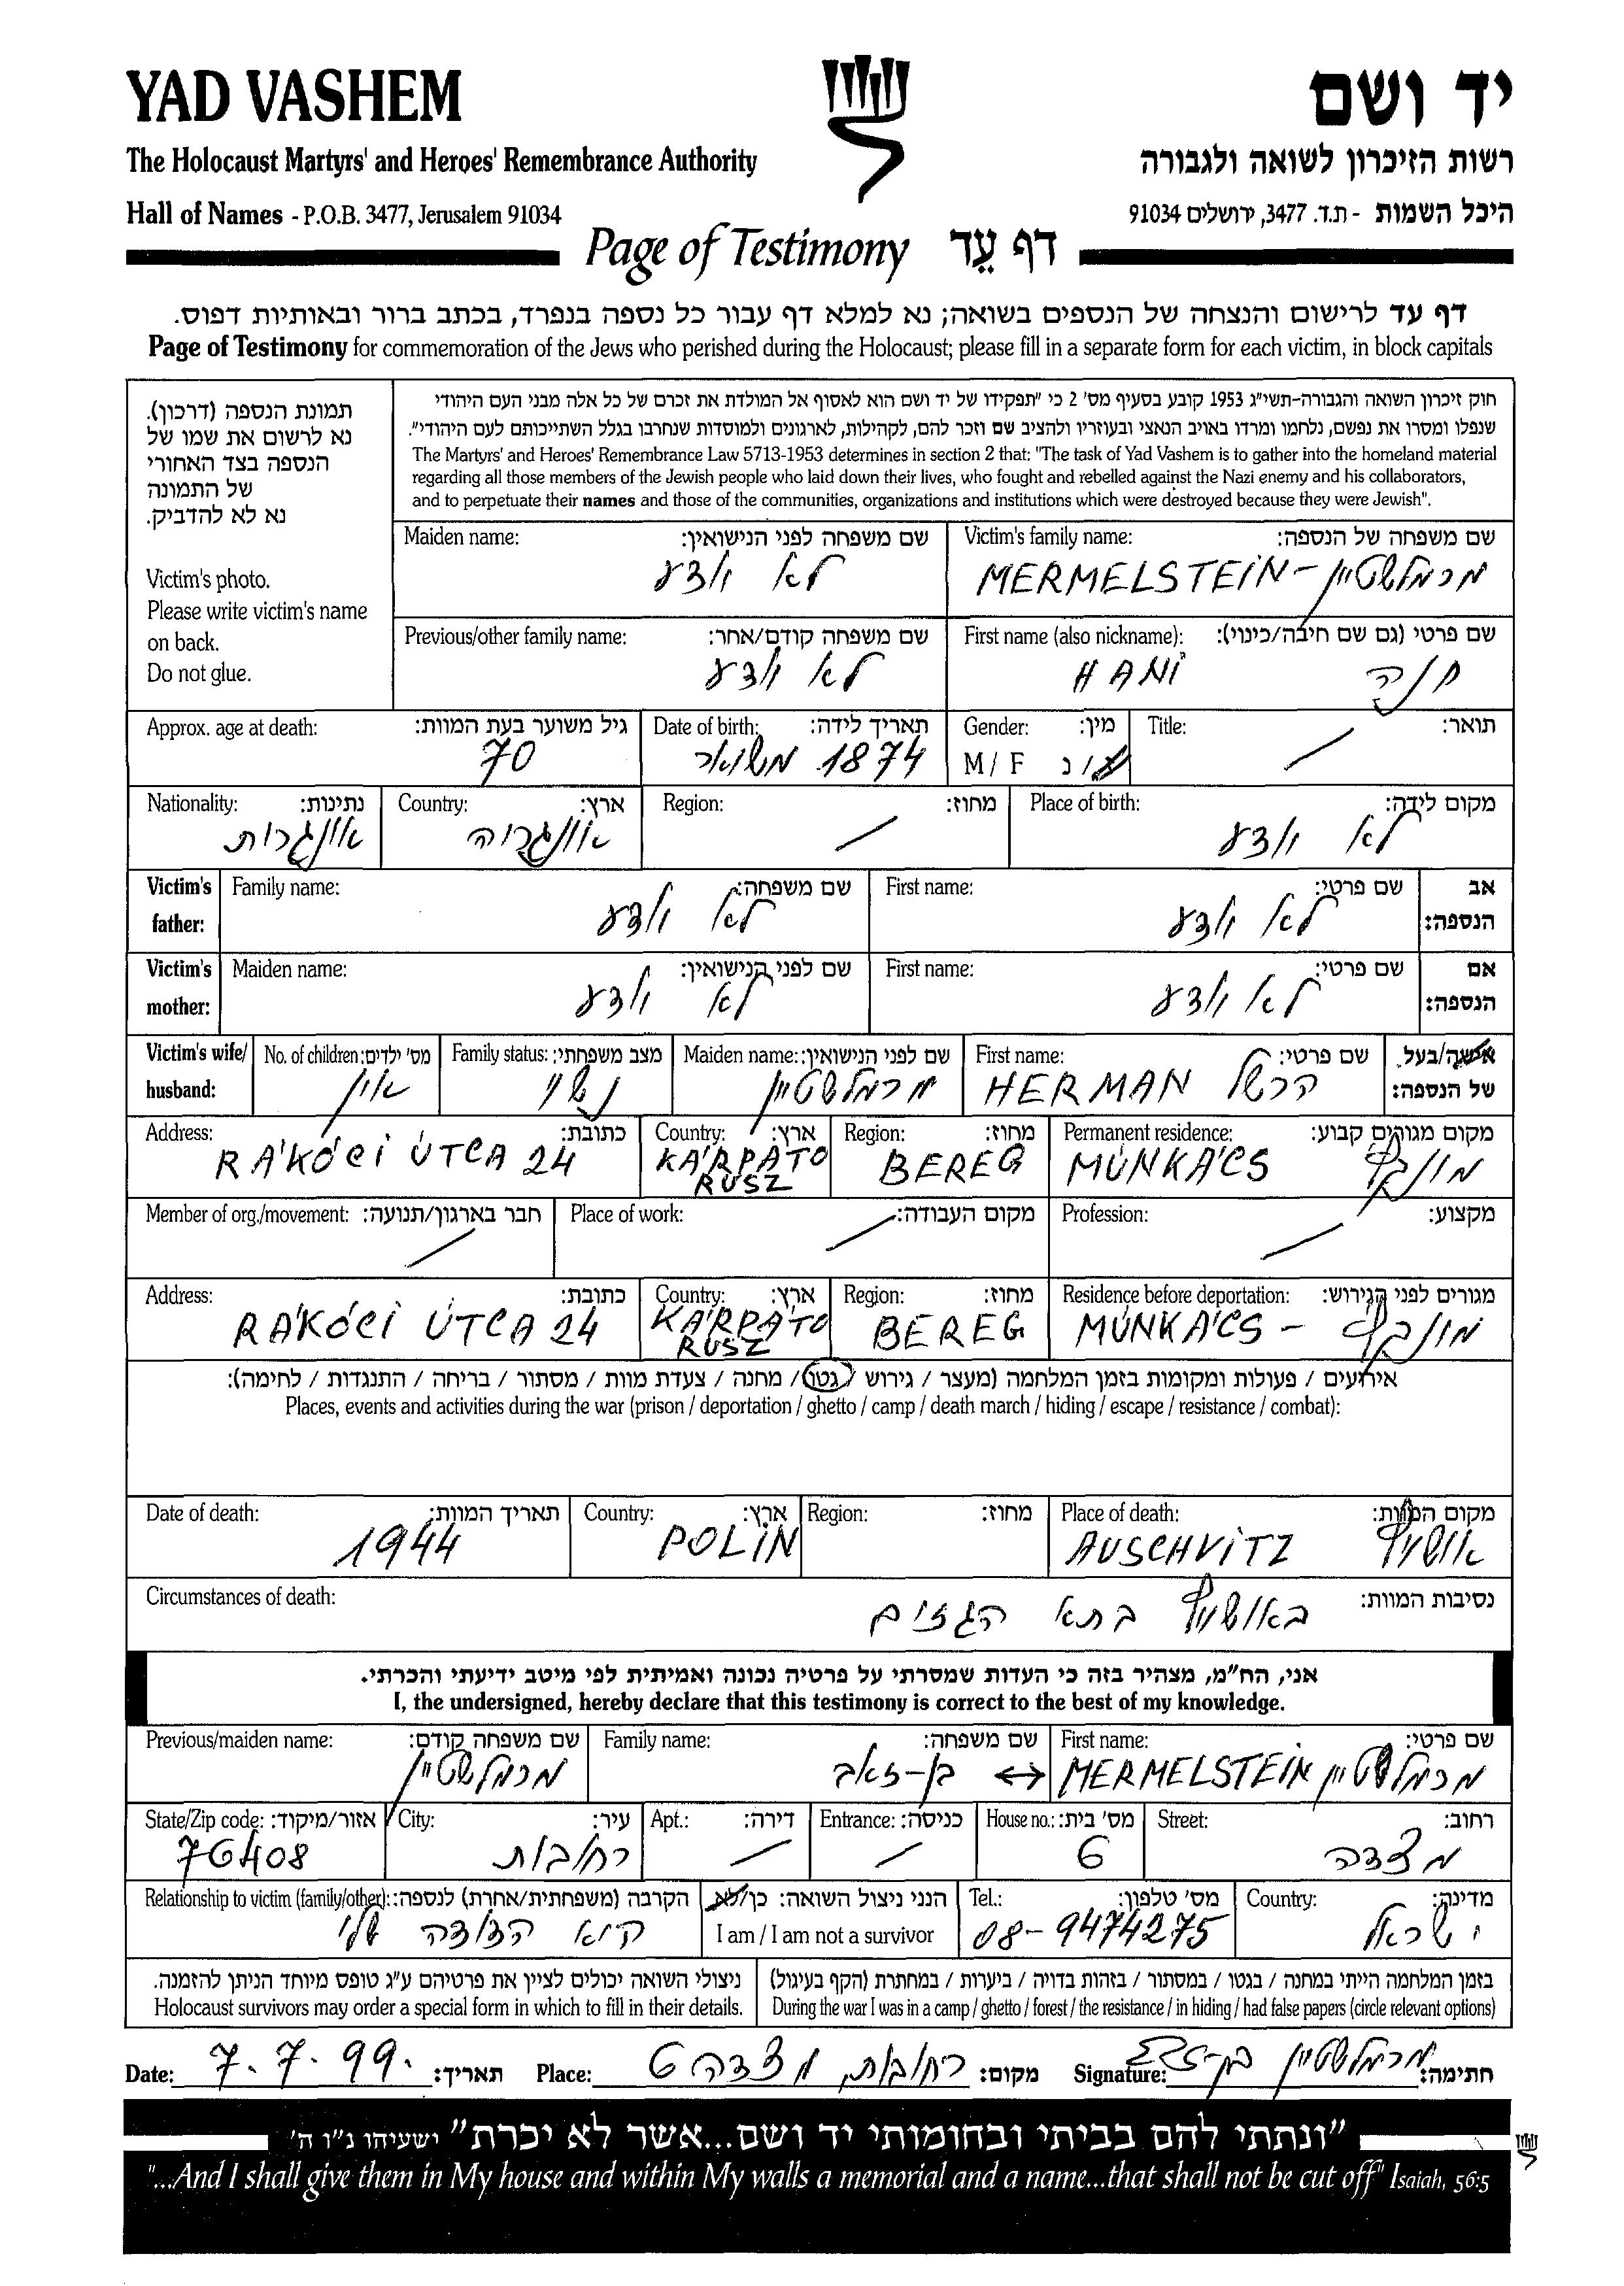 YAD VASHEM
יד ושם
The Holocaust Martyrs' and Heroes' Remembrance Authority
רשות הזיכרון לשואה ולגבורה
Hall of Names - P.O.B. 3477, Jerusalem 91034
היכל השמות - ת.ד. 3477, ירושלים 91034
Page of Testimony דף עֵד
דף עד לרישום והנצחה של הנספים בשואה; נא למלא דף עבור כל נספה בנפרד, בכתב ברור ובאותיות דפוס.
Page of Testimony for commemoration of the Jews who perished during the Holocaust; please fill in a separate form for each victim, in block capitals
תמונת הנספה (דרכון).
נא לרשום את שמו של
הנספה בצד האחורי
של התמונה
נא לא להדביק.
Victim's photo.
Please write victim's name
on back.
Do not glue.
חוק זיכרון השואה והגבורה-תשי"ג 1953 קובע בסעיף מס' 2 כי "תפקידו של יד ושם הוא לאסוף אל המולדת את זכרם של כל אלה מבני העם היהודי
שנפלו ומסרו את נפשם, נלחמו ומרדו באויב הנאצי ובעוזריו ולהציב שם וזכר להם, לקהילות, לארגונים ולמוסדות שנחרבו בגלל השתייכותם לעם היהודי".
The Martyrs' and Heroes' Remembrance Law 5713-1953 determines in section 2 that: "The task of Yad Vashem is to gather into the homeland material
regarding all those members of the Jewish people who laid down their lives, who fought and rebelled against the Nazi enemy and his collaborators,
and to perpetuate their names and those of the communities, organizations and institutions which were destroyed because they were Jewish".
Maiden name: שם משפחה לפני הנישואין:
לא יודע
Victim's family name: שם משפחה של הנספה:
MERMELSTEIN - מרמלשטיין
Previous/other family name: שם משפחה קודם/אחר:
לא יודע
First name (also nickname): שם פרטי (גם שם חיבה/כינוי):
HANI חנה
Approx. age at death: גיל משוער בעת המוות:
70
Date of birth: תאריך לידה:
1874 משוער
Gender: מין:
M / F ז/נ
Title: תואר:
Nationality: נתינות:
אונגרית
Country: ארץ:
אונגריה
Region: מחוז:
Place of birth: מקום לידה:
לא יודע
Victim's father: אב הנספה:
Family name: שם משפחה:
לא יודע
First name: שם פרטי:
לא יודע
Victim's mother: אם הנספה:
Maiden name: שם לפני הנישואין:
לא יודע
First name: שם פרטי:
לא יודע
Victim's wife/ husband: אישה/בעל של הנספה:
No. of children: מס' ילדים:
אין
Family status: מצב משפחתי:
נשוי
Maiden name: שם לפני הנישואין:
מרמלשטיין
First name: שם פרטי:
HERMAN הרשל
Address: כתובת:
RÁKÓCI ÚTCA 24
Country: ארץ:
KÁRPÁTO
RUSZ
Region: מחוז:
BEREG
Permanent residence: מקום מגורים קבוע:
MUNKÁCS מונקץ
Member of org./movement: חבר בארגון/תנועה:
Place of work: מקום העבודה:
Profession: מקצוע:
Address: כתובת:
RÁKÓCI ÚTCA 24
Country: ארץ:
KÁRPÁTO
RUSZ
Region: מחוז:
BEREG
Residence before deportation: מגורים לפני הגירוש:
MUNKÁCS - מונקץ
אירועים / פעולות ומקומות בזמן המלחמה (מעצר / גירוש / גטו / מחנה / צעדת מוות / מסתור / בריחה / התנגדות / לחימה):
Places, events and activities during the war (prison / deportation / ghetto / camp / death march / hiding / escape / resistance / combat):
Date of death: תאריך המוות:
1944
Country: ארץ:
POLIN
Region: מחוז:
Place of death: מקום המוות:
AUSCHVITZ אושויץ
Circumstances of death: נסיבות המוות:
באושויץ בתא הגזים
אני, הח"מ, מצהיר בזה כי העדות שמסרתי על פרטיה נכונה ואמיתית לפי מיטב ידיעתי והכרתי.
I, the undersigned, hereby declare that this testimony is correct to the best of my knowledge.
Previous/maiden name: שם משפחה קודם:
מרמלשטיין
Family name: שם משפחה:
בן-זאב ↔
First name: שם פרטי:
MERMELSTEIN מרמלשטיין
State/Zip code: אזור/מיקוד:
76408
City: עיר:
רחובות
Apt.: דירה:
Entrance: כניסה:
House no.: מס' בית:
6
Street: רחוב:
מצדה
Relationship to victim (family/other): הקרבה (משפחתית/אחרת) לנספה:
היא הדודה שלי
הנני ניצול השואה: כן/לא
I am / I am not a survivor
Tel.: מס' טלפון:
08-9474275
Country: מדינה:
ישראל
ניצולי השואה יכולים לציין את פרטיהם ע"ג טופס מיוחד הניתן להזמנה.
Holocaust survivors may order a special form in which to fill in their details.
בזמן המלחמה הייתי במחנה / בגטו / במסתור / בזהות בדויה / ביערות / במחתרת (הקף בעיגול)
During the war I was in a camp / ghetto / forest / the resistance / in hiding / had false papers (circle relevant options)
Date: 7.7.99. תאריך: Place: רחובות, מצדה 6 מקום: Signature: מרמלשטיין בן-זאב חתימה:
"ונתתי להם בביתי ובחומותי יד ושם...אשר לא יכרת" ישעיהו נ"ו ה'
"...And I shall give them in My house and within My walls a memorial and a name...that shall not be cut off" Isaiah, 56:5